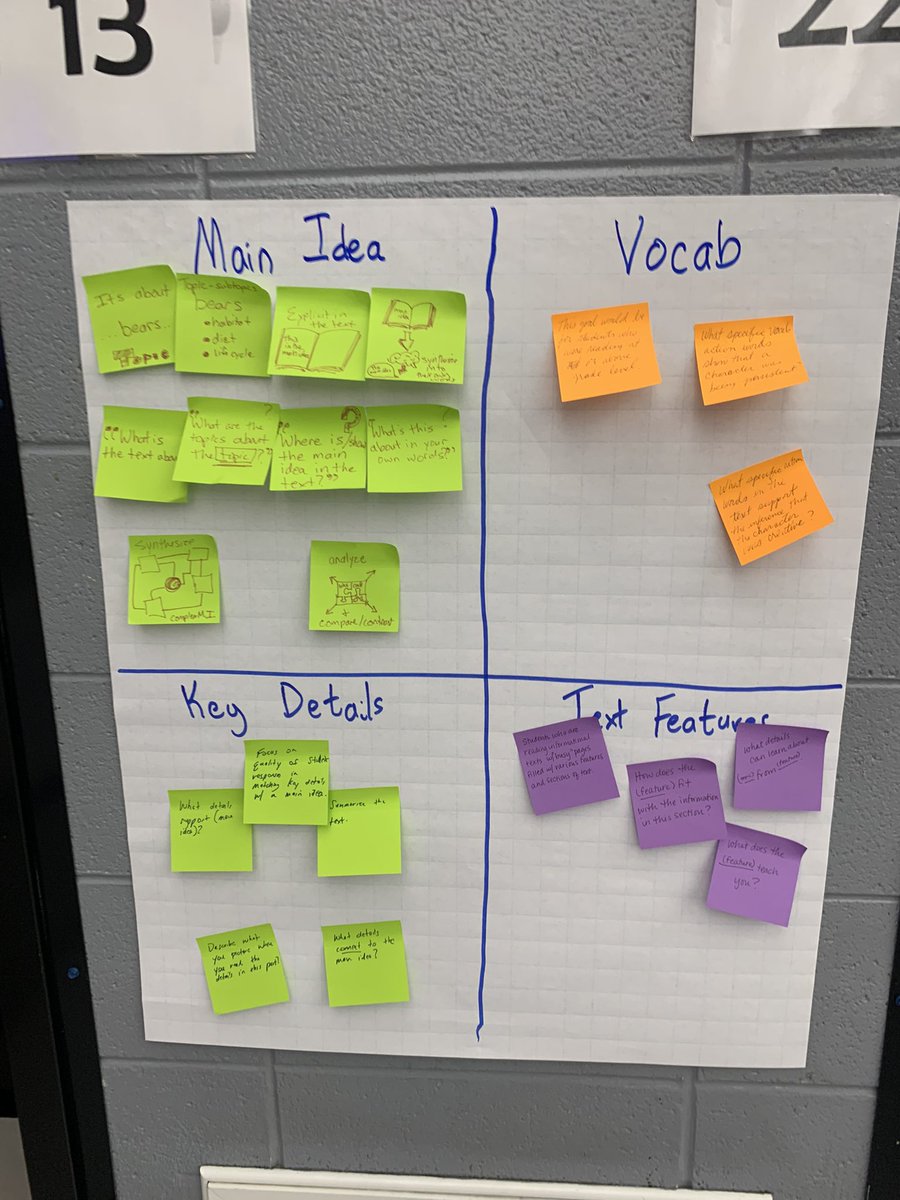 13
22
Main Idea
It's about
...bears...
Topic
Topic-subtopics
bears
• habitat
• diet
• life cycle
Explicit in
the text
this
is the
main idea
main
idea
synthesize
into
their own
words
"What is
the text about
"What are the
topics about
the (topic)?"
?
"Where is/
the main
idea in the
text?"
"What's this
about in your
own words?"
Synthesize
complex MI
analyze
+
compare/contrast
Vocab
This goal would be
for students who
were reading at
or above
grade level.
What specific
action words
show that a
character was
being persistent?
What specific action
words in the
text support
the inference that
the character
was creative?
Key Details
Focus on
quality of student
response in
matching key details
w/ a main idea.
What details
support (main
idea)?
Summarize the
text.
Describe what
you picture when
you read the
details in this part?
What details
connect to the
main idea?
Text Features
Students who are
reading informational
texts w/ "busy" pages
filled w/ various features
and sections of text.
How does the
(feature) fit
with the information
in this section?
What details
can learn about
(topic) from (feature)
What does the
(feature) teach
you?